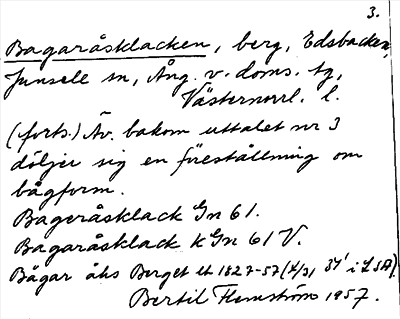 3.
Bagaråsklacken, berg, Edsbacken,
Junsele sn, Ång. v. doms. tg,
Västernorrl. l.
(forts.) Äv. bakom uttalet nr 3
döljer sig en föreställning om
bågform.
Bageråsklack Gn 61.
Bagaråsklack k Gn 61 V.
Bågar åhs Berget lt 1827-57 (4/31 34' i LSA).
Bertil Flemström 1957.